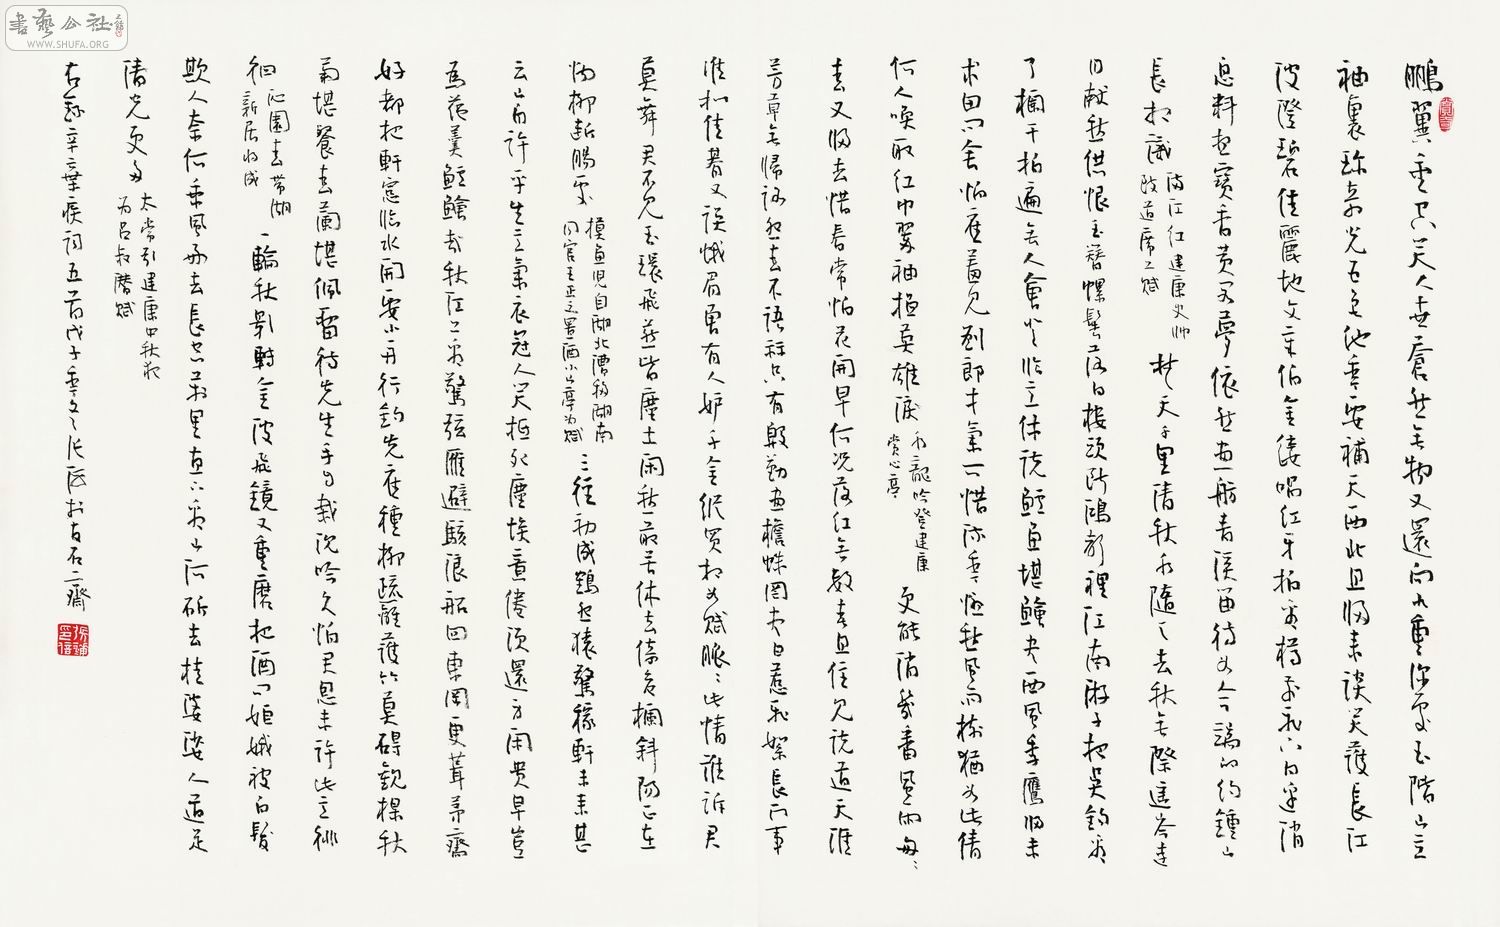 鵬翼垂空笑人世蒼然無物又還向九重深處玉階山立
袖裏珍奇光五色他年要補天西北且歸來談笑護長江
波澄碧佳麗地文章伯金縷唱紅牙拍看樽前飛下日邊消
息料想寶香黃閣夢依然畫舫青溪笛待如今端的約鍾山
長相識 滿江紅建康史帥致道席上賦 楚天千里清秋水隨天去秋無際遙岑遠
目獻愁供恨玉簪螺髻落日樓頭斷鴻聲裡江南游子把吳鉤看
了欄干拍遍無人會登臨意休説鱸魚堪鱠尽西風季鷹歸未
求田問舍怕應羞見劉郎才氣可惜流年憂愁風雨樹猶如此倩
何人喚取紅巾翠袖揾英雄淚 水龍吟登建康賞心亭 更能消幾番風雨匆匆
春又歸去惜春常怕花開早何況落紅無數春且住見説道天涯
芳草無歸路怨春不語算只有殷勤畫檐蛛網尽日惹飛絮長門事
准擬佳期又誤蛾眉曾有人妒千金縱買相如賦脉脉此情誰訴君
莫舞君不見玉環飛燕皆塵土閑愁最苦休去倚危欄斜陽正在
煙柳斷腸處 摸魚兒自湖北漕移湖南同官王正之置酒小山亭為賦 三徑初成鶴怨猿驚稼軒未來甚
云山自許平生意氣衣冠人笑抵死塵埃意倦須還身閑貴早豈
為蓴羹鱸鱠哉秋江上看驚弦雁避駭浪船回東岡更葺茅齋
好都把軒窗臨水開要小舟行釣先應種柳疏籬護竹莫礙觀梅秋
菊堪餐春蘭堪佩留待先生手自栽沉吟久怕君恩未許此意徘
徊 沁園春帶湖新居將成 一輪秋影轉金波飛鏡又重磨把酒問姮娥被白髮
欺人奈何乘風好去長空萬里直下看山河斫去桂婆娑人道是
清光更多 太常引建康中秋夜為呂叔潛賦
右録辛棄疾詞五首戊子年冬張於古石齋
書藝公社
WWW.SHUFA.ORG